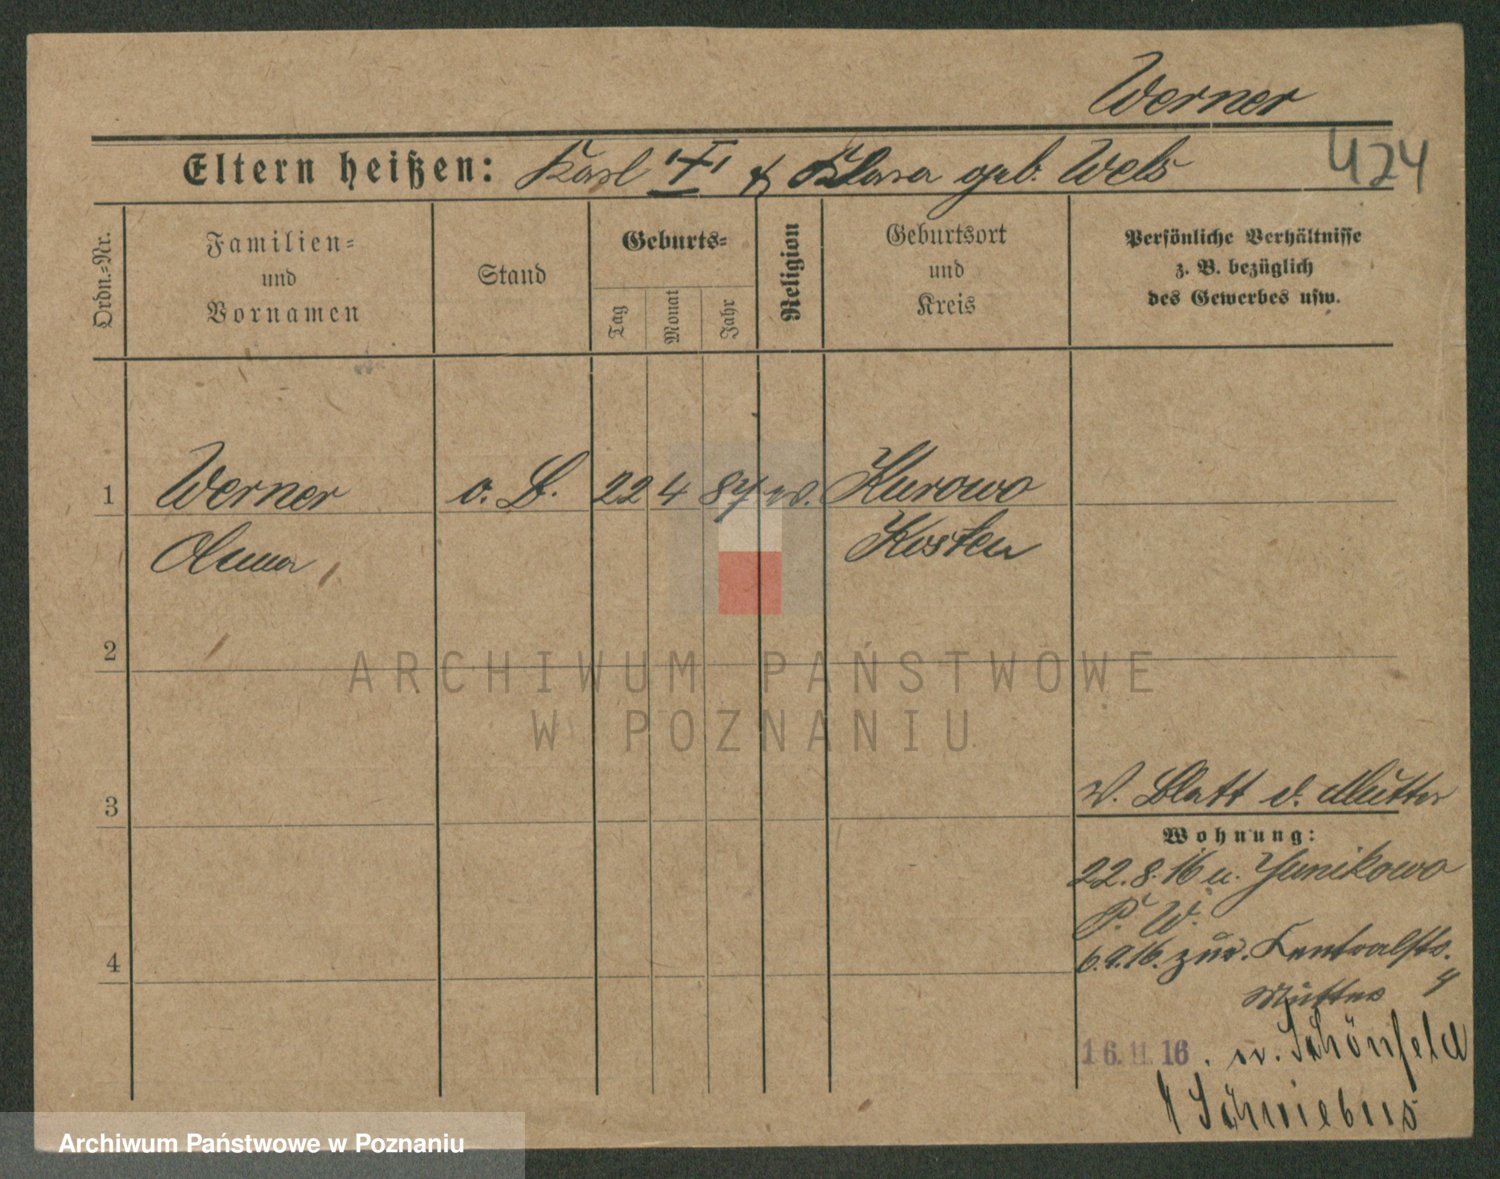 Werner
Eltern heißen: Karl & Klara geb. Wels
424
Ordn.=Nr.
Familien=
und
Vornamen
Stand
Geburts=
Tag
Monat
Jahr
Religion
Geburtsort
und
Kreis
Persönliche Verhältnisse
z. B. bezüglich
des Gewerbes usw.
1 Werner o. B. 22 4 87 Kurowo
Kosten
2
3
4
v. Blatt d. Mutter
Wohnung:
22.8.16 u. Junikowo
P. W.
6.9.16. zur.
Mutter
16.11.16. n. Schönfeld
Schwiebus
ARCHIWUM PAŃSTWOWE
W POZNANIU
Archiwum Państwowe w Poznaniu